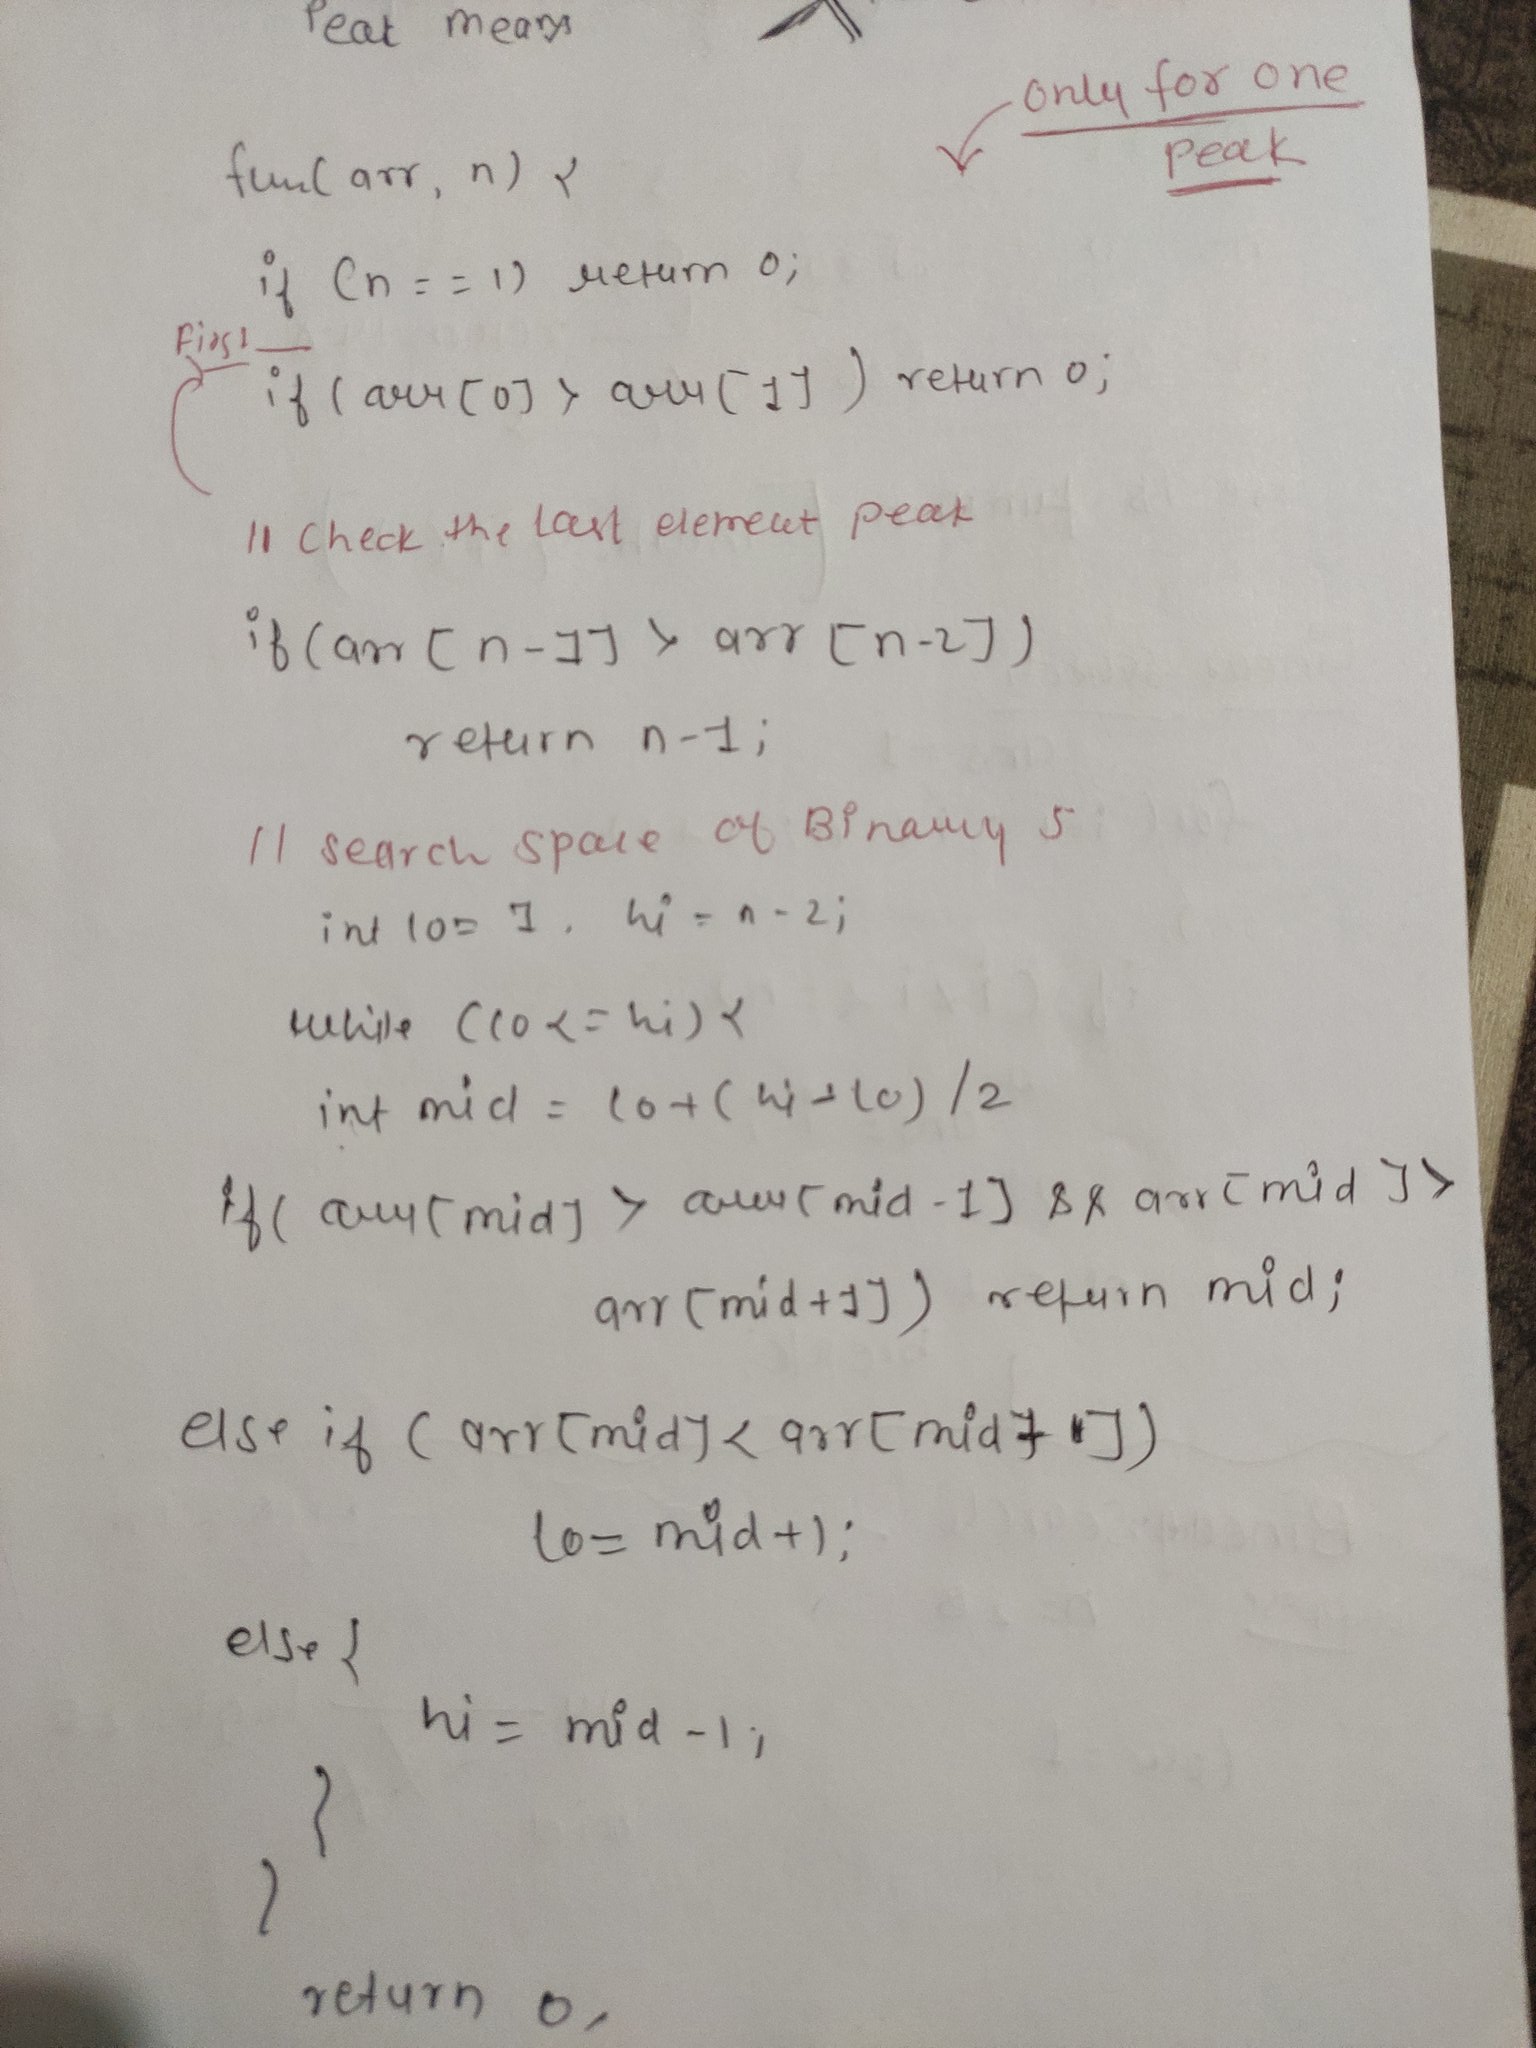 Peak means
only for one
peak
fun(arr, n) {
if (n == 1) return 0;
First
if (arr[0] > arr[1]) return 0;
// Check the last element peak
if (arr[n-1] > arr[n-2])
return n-1;
// search space of Binary S
int lo = 1, hi = n-2;
while (lo <= hi) {
int mid = lo + (hi - lo) / 2
if (arr[mid] > arr[mid-1] && arr[mid] >
arr[mid+1]) return mid;
else if (arr[mid] < arr[mid+1])
lo = mid+1;
else {
hi = mid-1;
}
}
return 0,